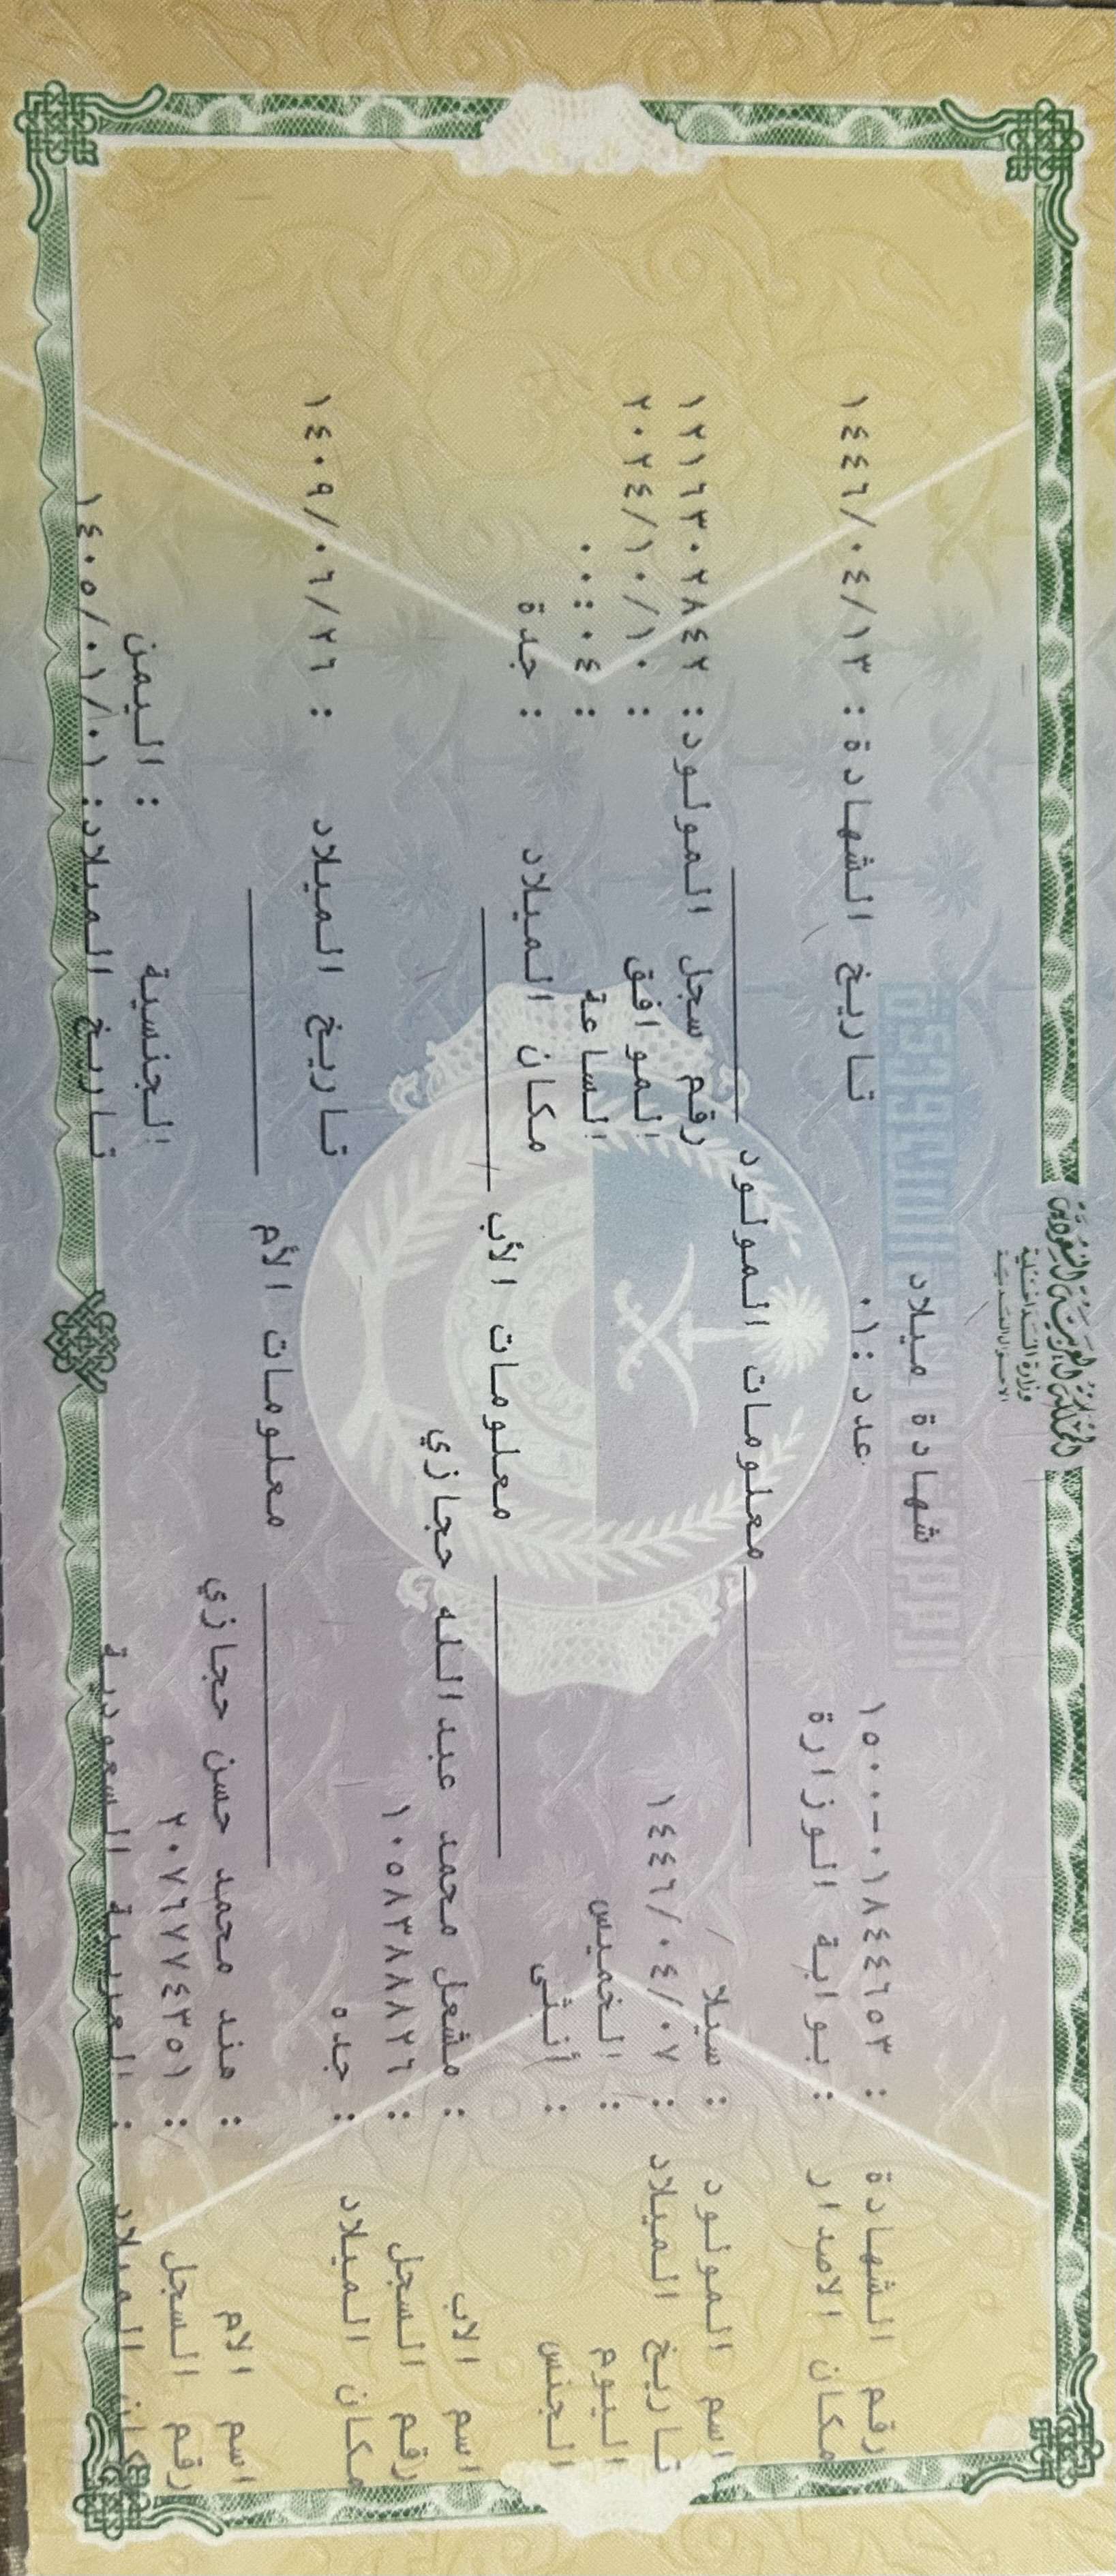 المملكة العربية السعودية
وزارة الداخلية
الأحوال المدنية
شهادة ميلاد
رقم الشهادة : ١٥٠٠-٠١٨٤٤٦٥٣ عدد :٠١ تاريخ الشهادة : ١٤٤٦/٠٤/١٣
مكان الاصدار : بوابة الوزارة
معلومات المولود
اسم المولود : سيلا رقم سجل المولود : ١٢١٦٣٠٢٨٤٢
تاريخ الميلاد : ١٤٤٦/٠٤/٠٧ الموافق : ٢٠٢٤/١٠/١٠
اليوم : الخميس الساعة : ٠٠:٠٤
الجنس : أنثى مكان الميلاد : جدة
معلومات الأب
اسم الاب : مشعل محمد عبدالله حجازي
رقم السجل : ١٠٥٨٣٨٨٨٢٦
مكان الميلاد : جده تاريخ الميلاد : ١٤٠٩/٠٦/٢٦
معلومات الأم
اسم الام : هند محمد حسن حجازي
رقم السجل : ٢٠٧٦٧٧٤٣٥١ الجنسية : اليمن
مكان الميلاد : العربية السعودية تاريخ الميلاد: ١٤٠٥/٠١/٠١